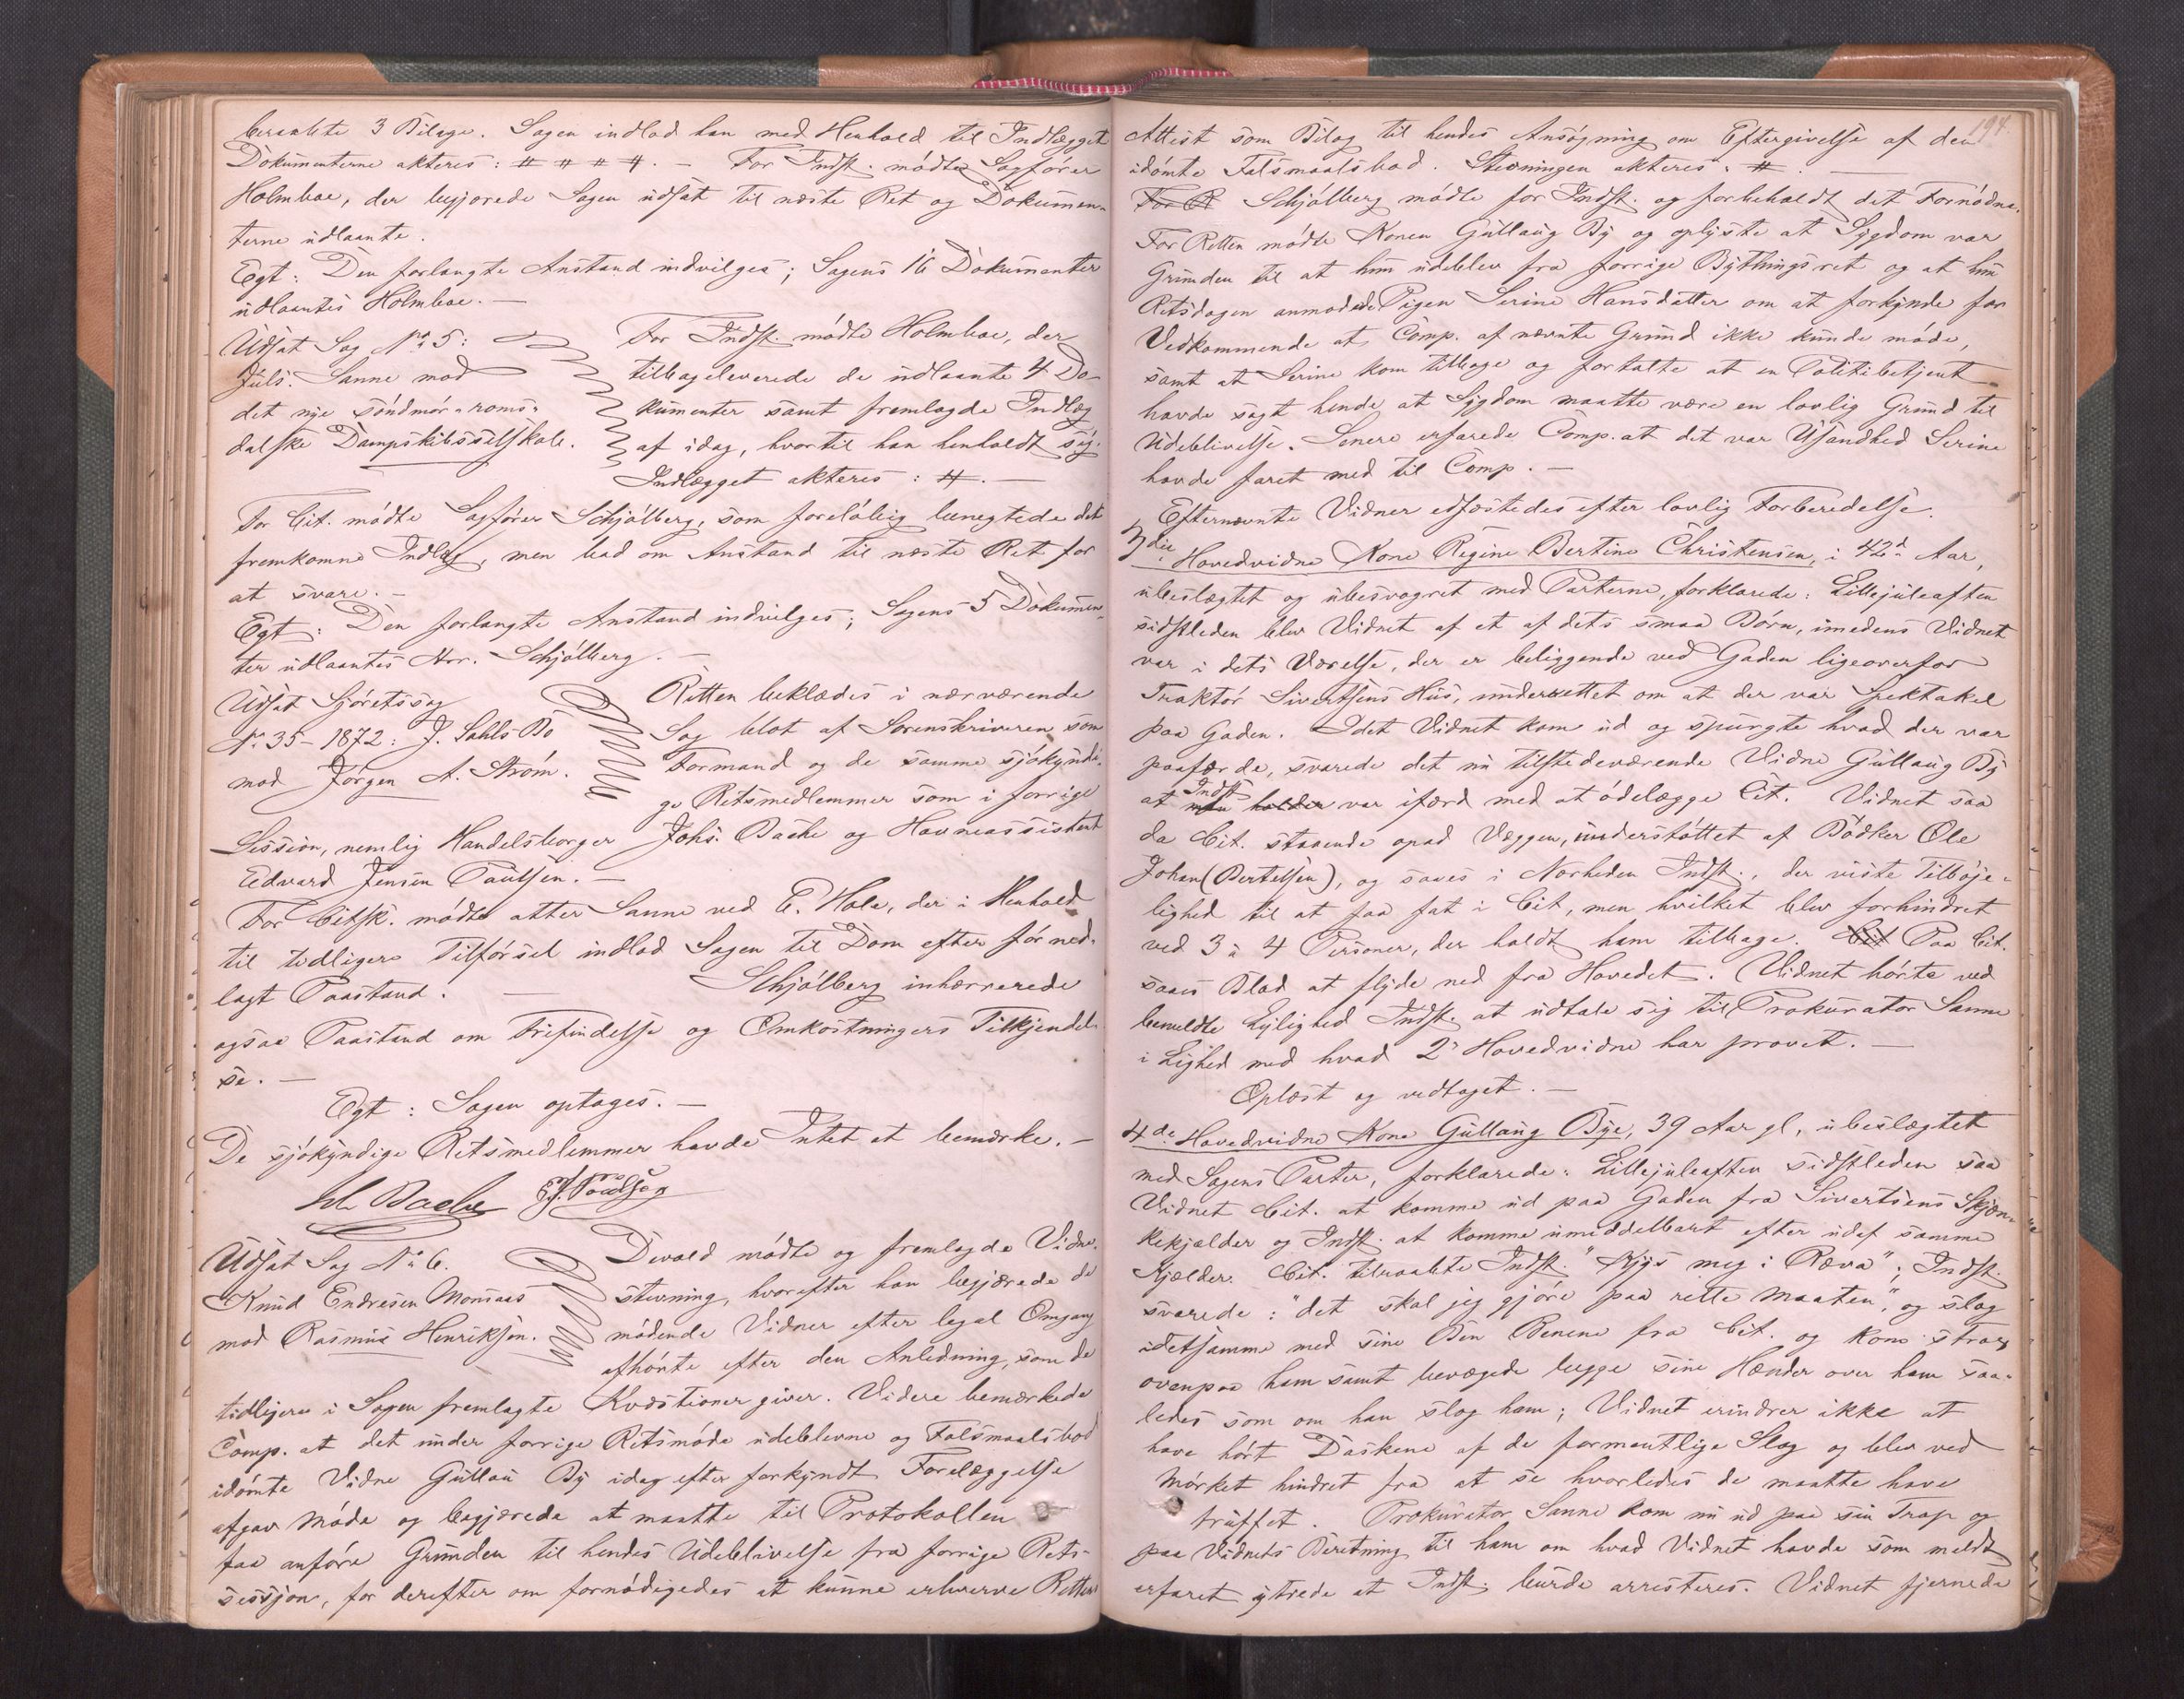 beraabte 3 Bilage. Sagen indlod han med Henhold til Indlægget
Dokumenterne akteres: # # # #. — For Indst. mødte Sagfører
Holmboe, der begjærede Sagen udsat til næste Ret og Dokumen-
terne udlaante.
Egt: Den forlangte Anstand indvilges; Sagens 16 Dokumenter
udlaantes Holmboe. —
Udsat Sag No 5:
Juls. Sanne mod
det nye söndmör-roms-
dalske Dampskibsselskab.
For Indst. mødte Holmboe, der
tilbageleverede de udlaante 4 Do-
kumenter samt fremlagde Indlæg
af idag, hvortil han henholdt sig.
Indlægget akteres: #. —
For Cit. mødte Sagfører Schjølberg, som foreløbig benegtede det
fremkomne Indlæg, men bad om Anstand til næste Ret for
at svare. —
Egt: Den forlangte Anstand indvilges; Sagens 5 Dokumen-
ter udlaantes Hrr. Schjølberg. —
Udsat Sjøretssag
No 35 - 1872: J. Sahls Bo
mod Jørgen A. Strøm.
Retten beklædes i nærværende
Sag blot af Sorenskriveren som
Formand og de samme sjøkyndi-
ge Retsmedlemmer som i forrige
Session, nemlig Handelsborger Johs. Bache og Havneassistent
Edvard Jensen Paulsen. —
For Citsk. mødte atter Sanne ved E. Hole, der i Henhold
til tidligere Tilførsel indlod Sagen til Dom efter før ned-
lagt Paastand. — Schjølberg inhærerede
ogsaa Paastand om Frifindelse og Omkostningers Tilkjendel-
se. —
Egt: Sagen optages. —
De sjøkyndige Retsmedlemmer havde Intet at bemærke. —
Joh Bache E. J. Poulsen
Udsat Sag No 6.
Knud Endresen Monsaas
mod Rasmus Henriksen.
Devold mødte og fremlagde Vidne-
stevning, hvorefter han begjærede de
mødende Vidner efter legal Omgang
afhørte efter den Anledning, som de
tidligere i Sagen fremlagte Kvæstioner giver. Videre bemærkede
Comp. at det under forrige Retsmøde udeblevne og Falsmaalsbod
idømte Vidne Gullau By idag efter forkyndt Forelæggelse
afgav Møde og begjærede at maatte til Protokollen
faa anføre Grunden til hendes Udeblivelse fra forrige Rets-
sessjon, for derefter om fornødigedes at kunne erhverve Rettens
194.
Attest som Bilag til hendes Ansøgning om Eftergivelse af den
idømte Falsmaalsbod. Stevningen akteres: #. —
For R Schjølberg mødte for Indst. og forbeholdt det Fornødne.
For Retten mødte Konen Gullaug By og oplyste at Sygdom var
Grunden til at hun udeblev fra forrige Bythingsret og at hun
Retsdagen anmodede Pigen Serine Hansdatter om at forkynde for
Vedkommende at Comp. af nævnte Grund ikke kunde møde,
samt at Serine kom tilbage og fortalte at en Politibetjent
havde sagt hende at Sygdom maatte være en lovlig Grund til
Udeblivelse. Senere erfarede Comp. at det var Usandhed Serine
havde faret med til Comp. —
Efternævnte Vidner edfæstedes efter lovlig Forberedelse.
3die Hovedvidne Kone Regine Bertine Christensen, i 42de Aar,
ubeslægtet og ubesvogret med Parterne, forklarede: Lillejuleaften
sidstleden blev Vidnet af et af dets smaa Børn, imedens Vidnet
var i dets Værelse, der er beliggende ved Gaden ligeoverfor
Traktør Sivertsens Hus, underrettet om at der var Spektakel
paa Gaden. Idet Vidnet kom ud og spurgte hvad der var
paafærde, svarede det nu tilstedeværende Vidne Gullaug By
at Indst. var ifærd med at ødelægge Cit. Vidnet saa
da Cit. staaende opad Væggen, understøttet af Bødker Ole
Johan (Bertelsen), og saaes i Nærheden Indst., der viste Tilbøje-
lighed til at faa fat i Cit, men hvilket blev forhindret
ved 3 à 4 Personer, der holdt ham tilbage. Cit Paa Cit.
saaes Blod at flyde ned fra Hovedet. Vidnet hørte ved
bemeldte Lejlighed Indst. at udtale sig til Prokurator Sanne
i Lighed med hvad 2' Hovedvidne har provet. —
Oplæst og vedtaget. —
4de Hovedvidne Kone Gullaug Bye, 39 Aar gl, ubeslægtet
med Sagens Parter, forklarede: Lillejuleaften sidstleden saa
Vidnet Cit. at komme ud paa Gaden fra Sivertsens Skjæn-
kekjælder og Indst. at komme umiddelbart efter udaf samme
Kjælder. Cit. tilraabte Indst. "Kys meg i Ræva"; Indst.
svarede: "det skal jeg gjøre paa rette Maaten", og slog
idetsamme med sine Ben Benene fra Cit. og kom strax
ovenpaa ham samt bevægede begge sine Hænder over ham saa-
ledes som om han slog ham; Vidnet erindrer ikke at
have hørt Daskene af de formentlige Slag og blev ved
Mørket hindret fra at se hvorledes de maatte have
truffet. Prokurator Sanne kom nu ud paa sin Trap og
paa Vidnets Beretning til ham om hvad Vidnet havde som meldt
erfaret ytrede at Indst. burde arresteres. Vidnet fjernede